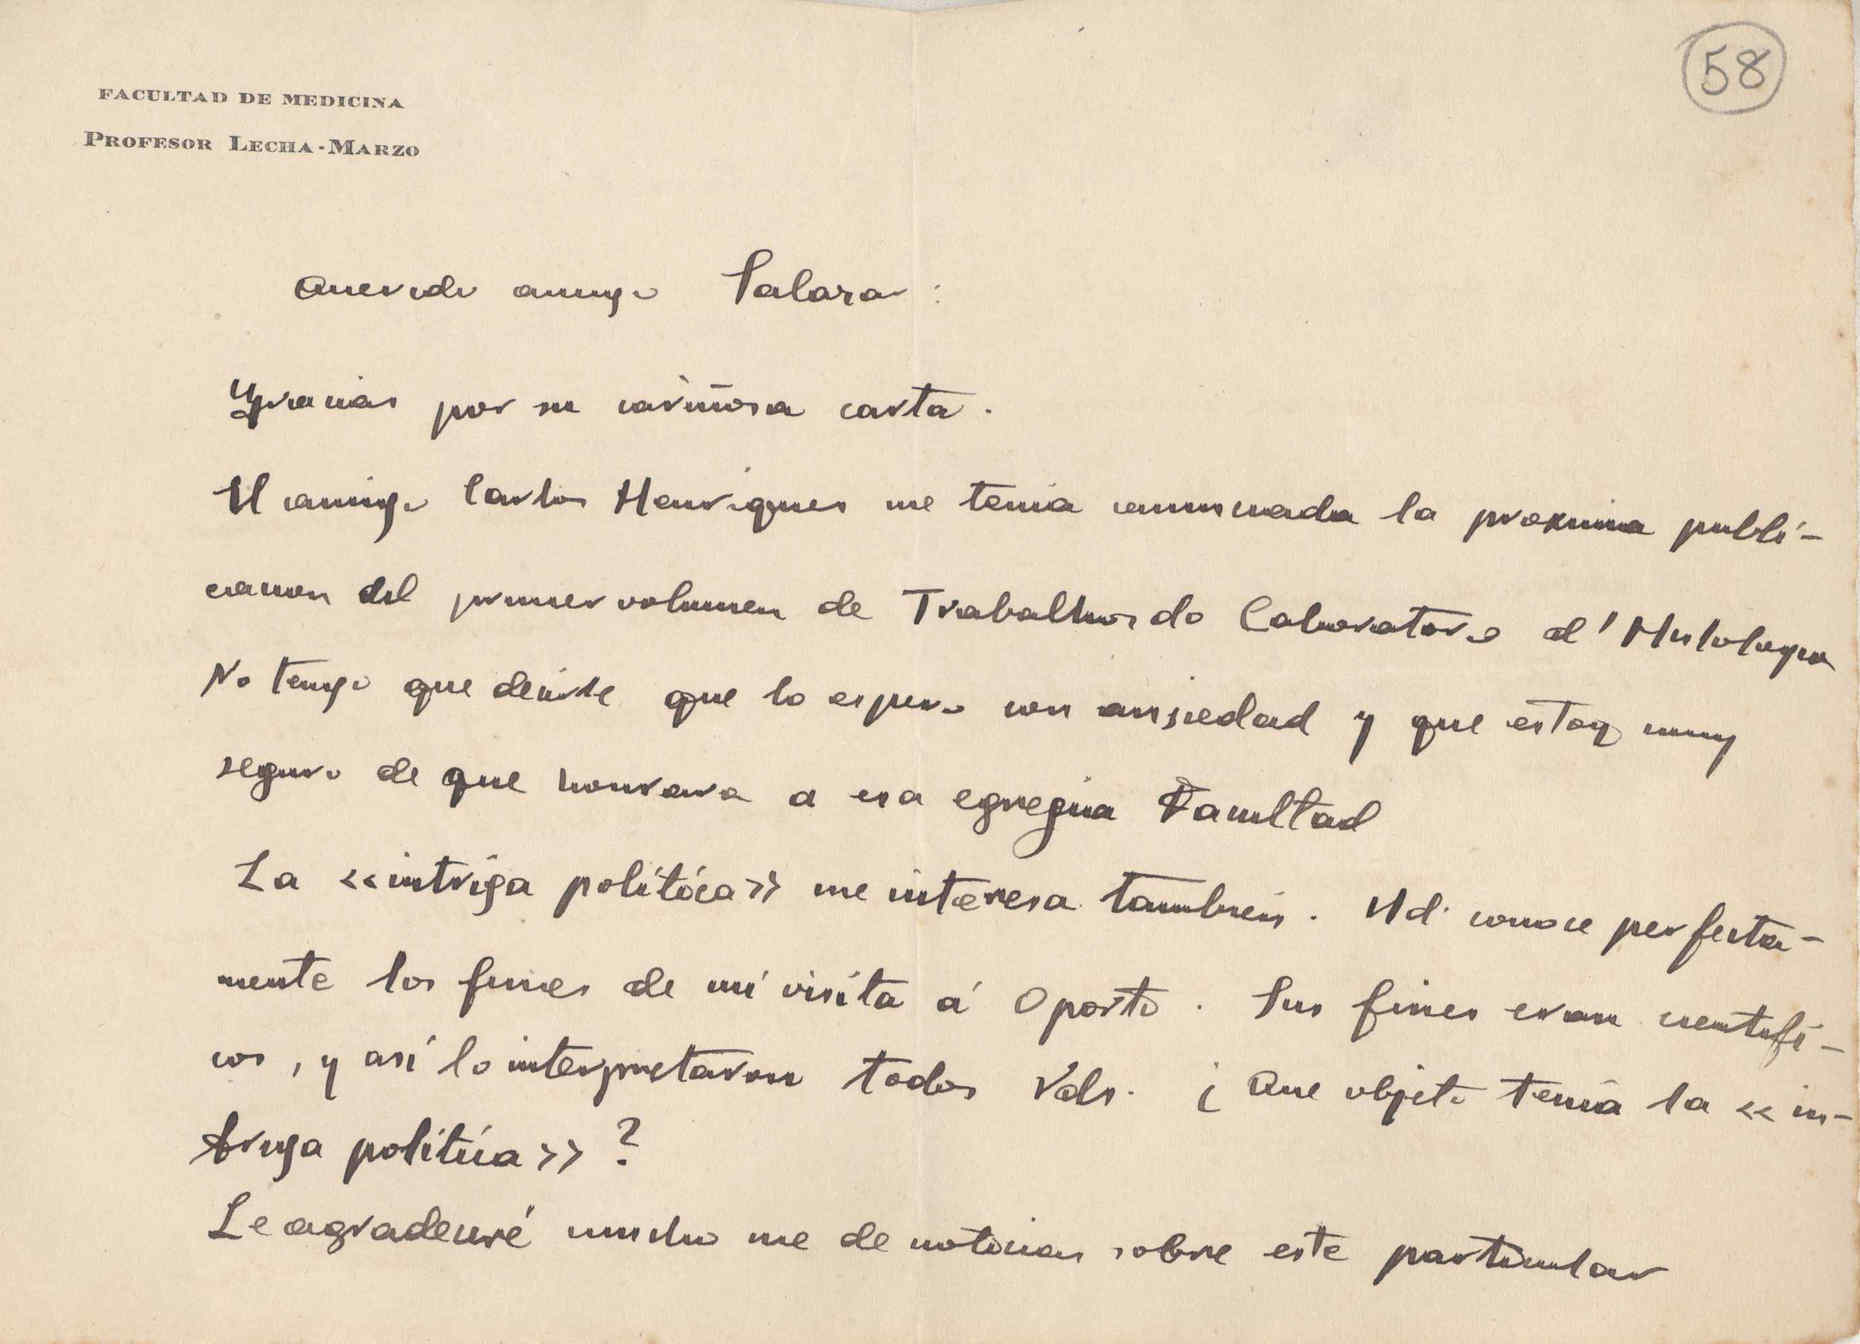 58
FACULTAD DE MEDICINA
PROFESOR LECHA-MARZO
Querido amigo Salazar:
Gracias por su cariñosa carta.
El amigo Carlos Henriques me tenia anunciada la proxima publi-
cacion del primer volumen de Trabalhos do Laboratorio d'Histologia
No tengo que decirle que lo espero con ansiedad y que estoy muy
seguro de que honrara a esa egregia Facultad
La «intriga politica» me interesa tambien. Ud. conoce perfecta-
mente los fines de mi visita á Oporto. Sus fines eran cientifi-
cos, y asi lo interpretaron todos Vds. ¿Que objeto tenia la «in-
triga politica»?
Le agradeceré mucho me de noticias sobre este particular